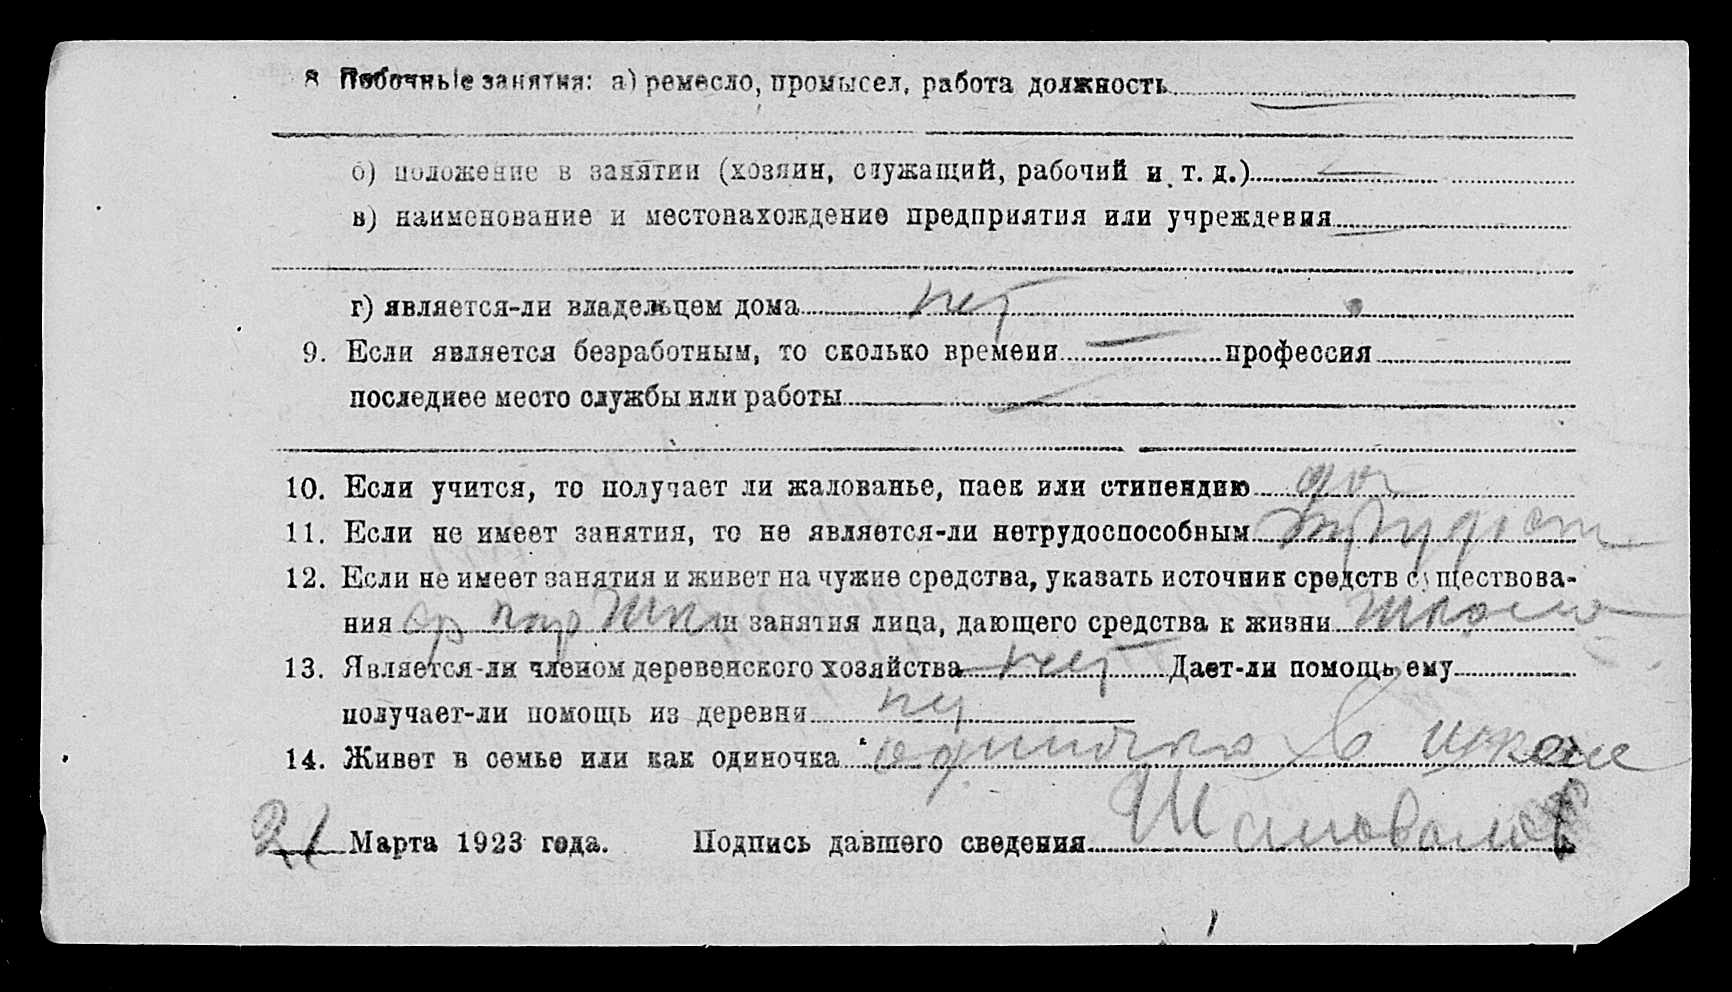 8 Побочные занятия: а) ремесло, промысел, работа должность
б) положение в занятии (хозяин, служащий, рабочий и т. д.)
в) наименование и местонахождение предприятия или учреждения
г) является-ли владельцем дома нет
9. Если является безработным, то сколько времени — профессия
последнее место службы или работы —
10. Если учится, то получает ли жалованье, паек или стипендию да
11. Если не имеет занятия, то не является-ли нетрудоспособным
12. Если не имеет занятия и живет на чужие средства, указать источник средств существова-
ния и занятия лица, дающего средства к жизни школа
13. Является-ли членом деревенского хозяйства нет Дает-ли помощь ему
получает-ли помощь из деревни нет
14. Живет в семье или как одиночка одиночка в школе
21 Марта 1923 года. Подпись давшего сведения Шаповалов